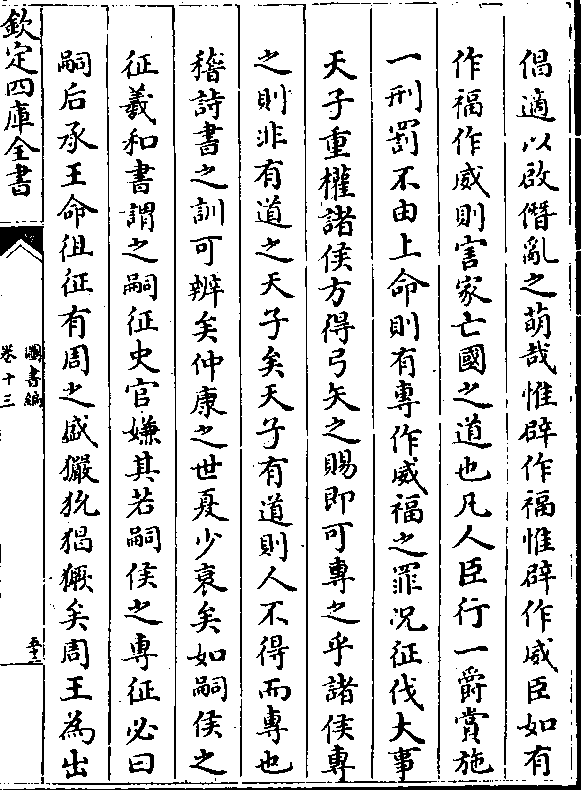 倡適以啟僭亂之萌哉惟辟作福惟辟作威臣如有
作福作威則害家亡國之道也凡人臣行一爵賞施
一刑罰不由上命則有專作威福之罪况征伐大事
天子重權諸侯方得弓矢之賜即可專之乎諸侯專
之則非有道之天子矣天子有道則人不得而專也
稽詩書之訓可辨矣仲康之世夏少衰矣如嗣侯之
征羲和書謂之嗣征史官嫌其若嗣侯之專征必曰
嗣后承王命徂征有周之盛玁狁猖獗矣周王為出
欽定四庫全書
圖書編
卷十三